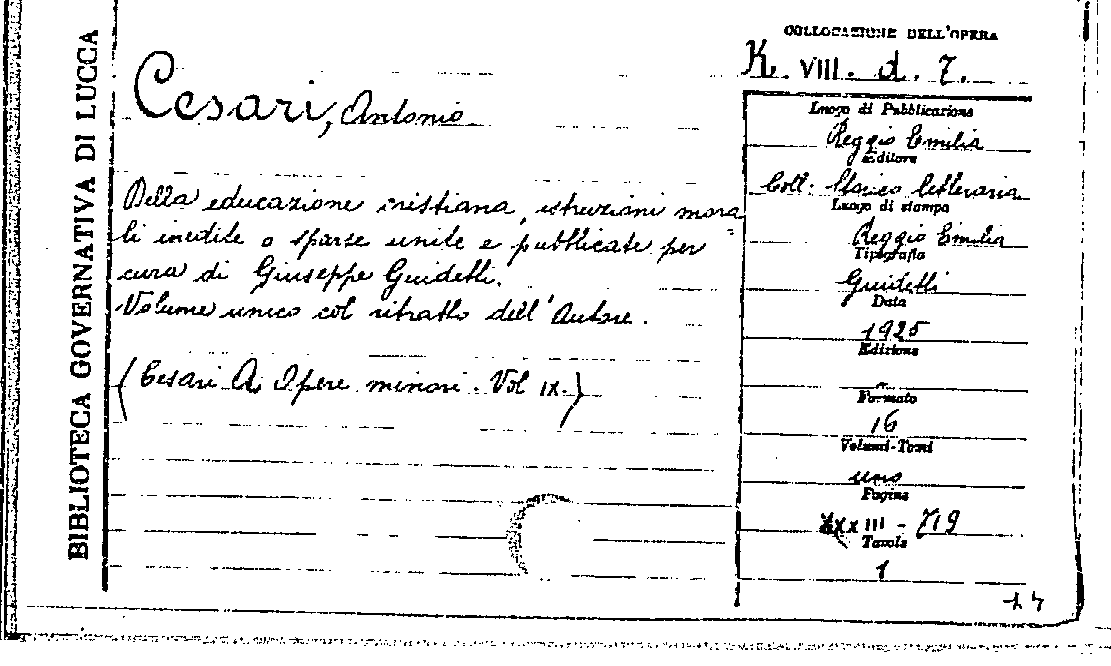 BIBLIOTECA GOVERNATIVA DI LUCCA
Cesari, Antonio
Della educazione cristiana, istruzioni mora
li inedite o sparse unite e pubblicate per
cura di Giuseppe Guidetti.
Volume unico col ritratto dell'Autore.
(Cesari A Opere minori. Vol IX.)
COLLOCAZIONE DELL'OPERA
K. VIII. d. 7.
Luogo di Pubblicazione
Reggio Emilia
Editore
Coll: Storico letteraria
Luogo di stampa
Reggio Emilia
Tipografia
Guidetti
Data
1925
Edizione
Formato
16
Volumi-Tomi
uno
Pagine
XXXIII - 719
Tavole
1